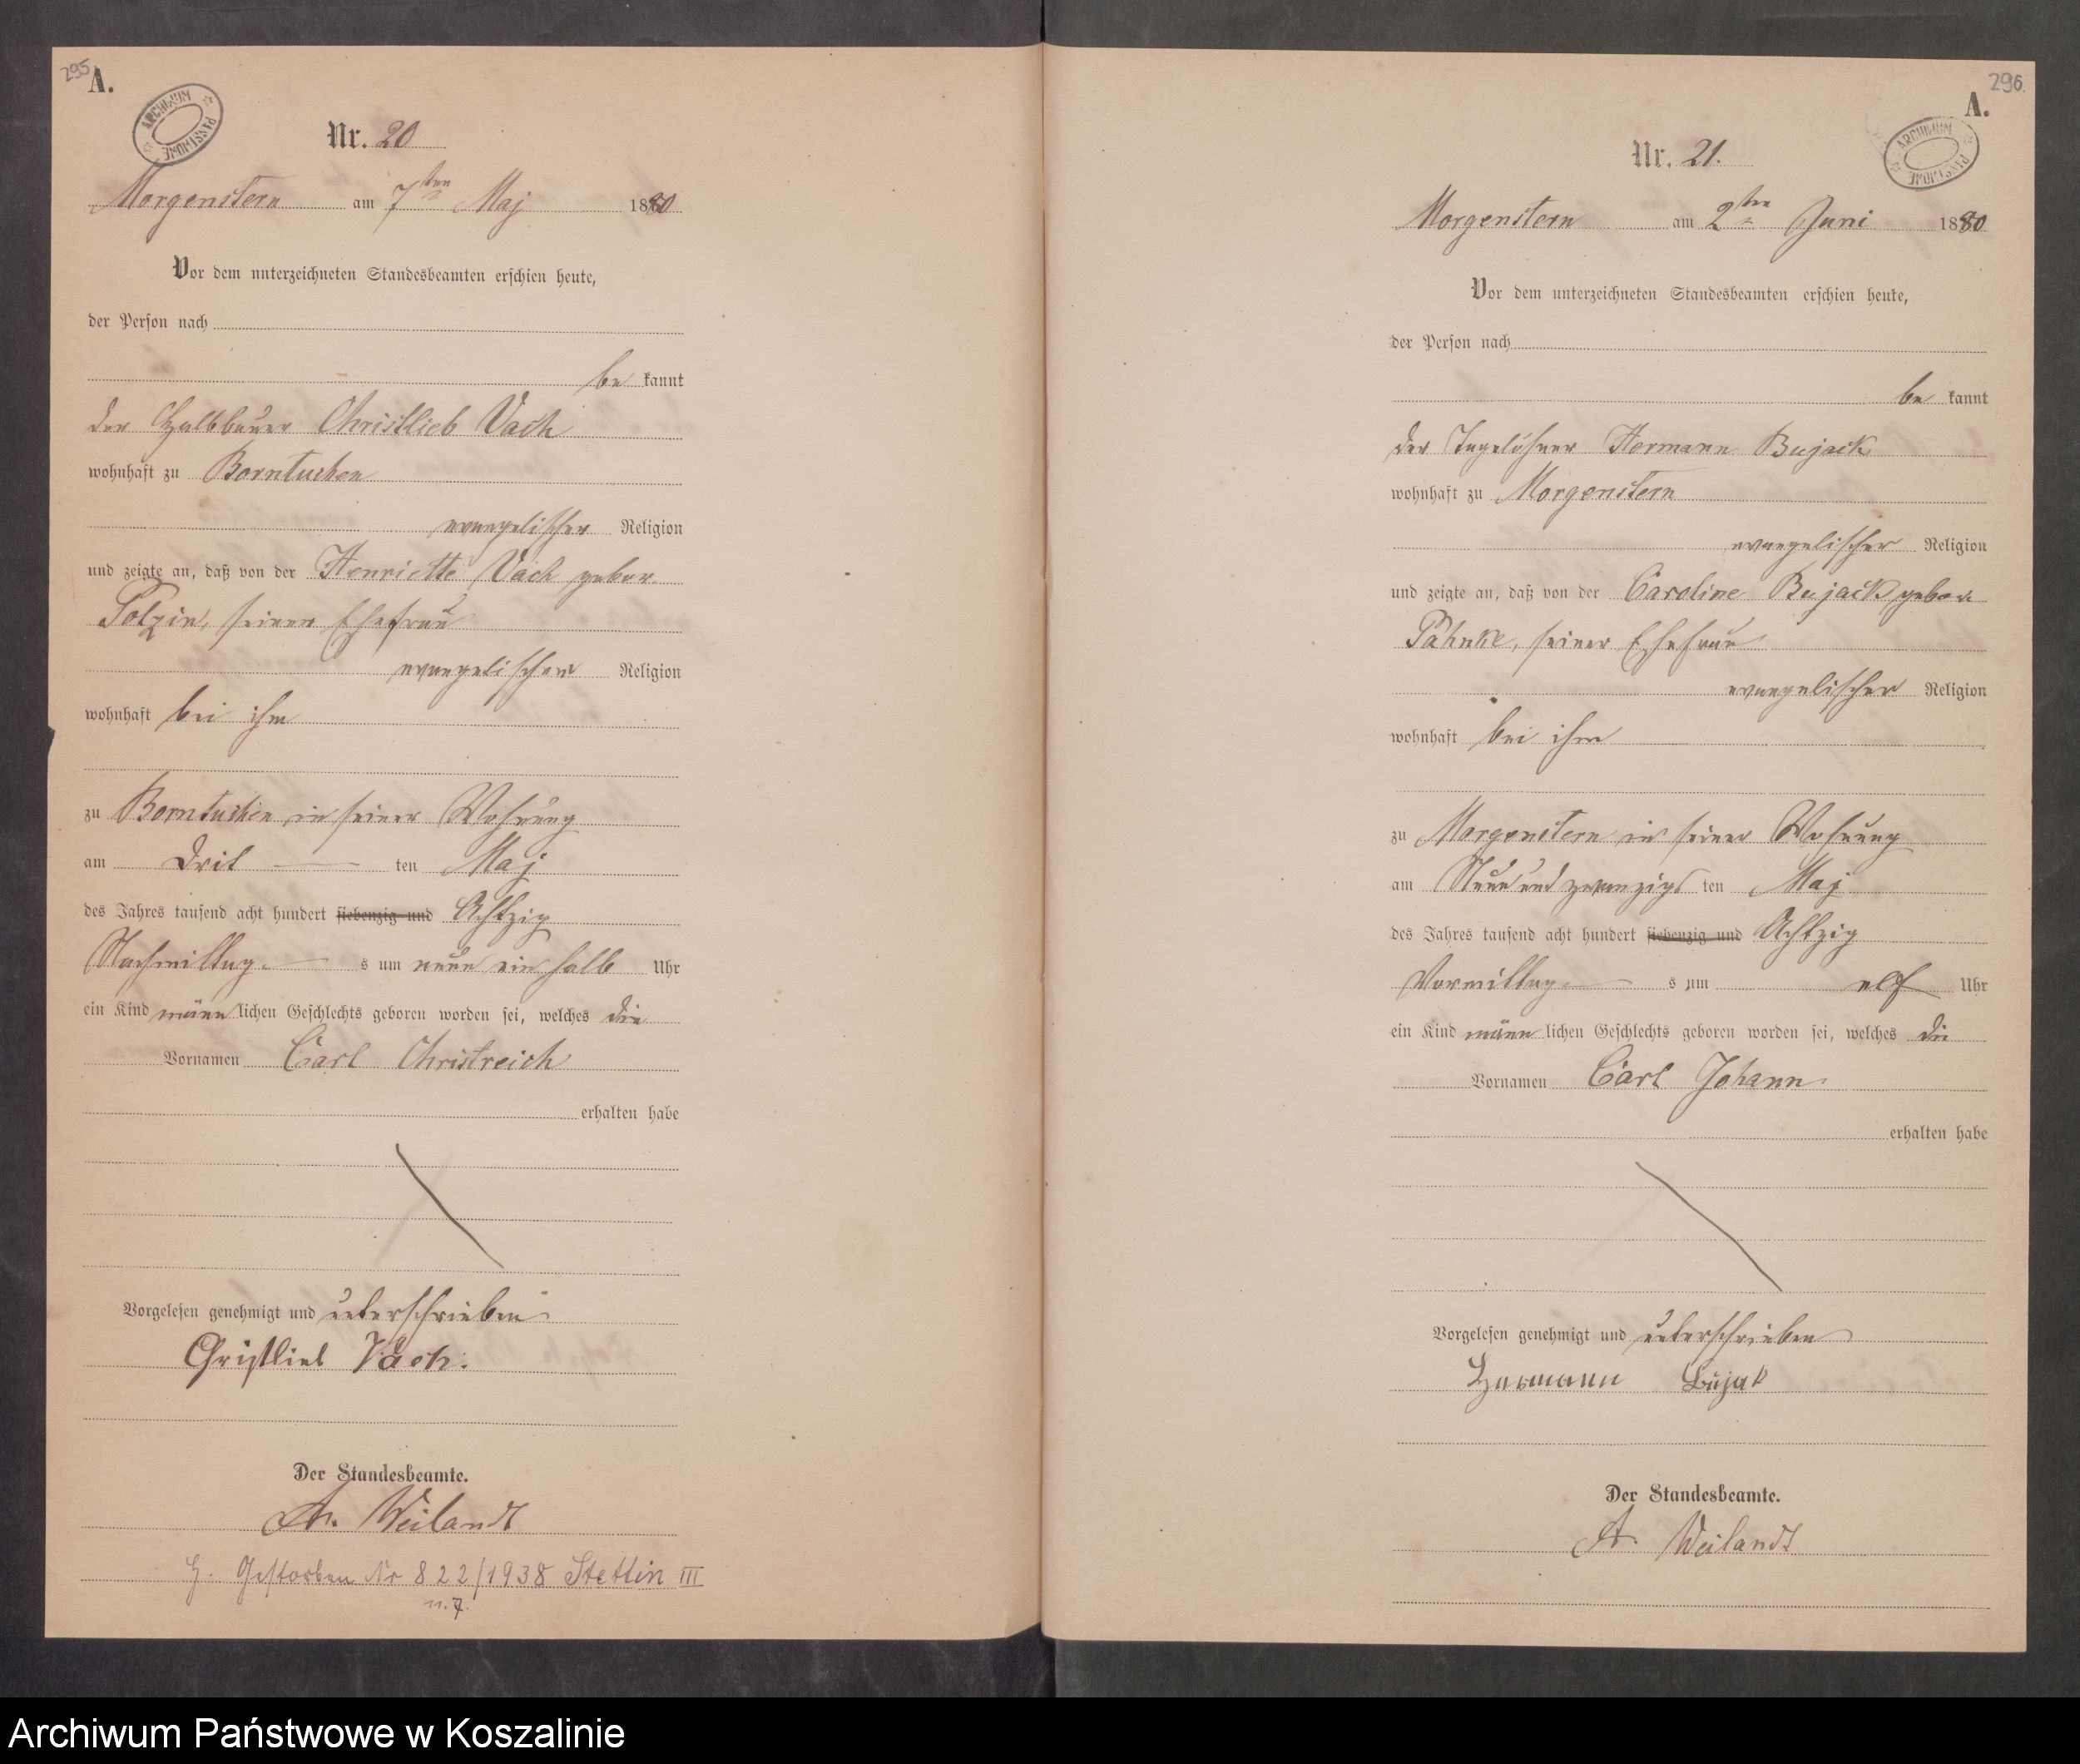 295
A.
ARCHIWUM PAŃSTWOWE
Nr. 20
Morgenstern am 7ten Maj 1880
Vor dem unterzeichneten Standesbeamten erschien heute,
der Person nach
be kannt
der Halbbauer Christlieb Vach
wohnhaft zu Borntuchen
evangelischer Religion
und zeigte an, daß von der Henriette Vach gebor.
Polzin, seiner Ehefrau
evangelischer Religion
wohnhaft bei ihm
zu Borntuchen in seiner Wohnung
am Drit ten Maj
des Jahres tausend acht hundert siebenzig und Achtzig
Nachmittag s um neun ein halb Uhr
ein Kind männ lichen Geschlechts geboren worden sei, welches die
Vornamen Carl Christreich
erhalten habe
Vorgelesen genehmigt und unterschrieben
Christlieb Vach.
Der Standesbeamte.
A. Weilandt
H. Gestorben Nr 822/1938 Stettin III
296
A.
ARCHIWUM PAŃSTWOWE
Nr. 21.
Morgenstern am 2ten Juni 1880
Vor dem unterzeichneten Standesbeamten erschien heute,
der Person nach
be kannt
der Tagelöhner Hermann Bujack
wohnhaft zu Morgenstern
evangelischer Religion
und zeigte an, daß von der Caroline Bujack gebor.
Pahnke, seiner Ehefrau
evangelischer Religion
wohnhaft bei ihm
zu Morgenstern in seiner Wohnung
am Neunundzwanzigs ten Maj
des Jahres tausend acht hundert siebenzig und Achtzig
Vormittag s um elf Uhr
ein Kind männ lichen Geschlechts geboren worden sei, welches die
Vornamen Carl Johann
erhalten habe
Vorgelesen genehmigt und unterschrieben
Hermann Bujak
Der Standesbeamte.
A. Weilandt
Archiwum Państwowe w Koszalinie